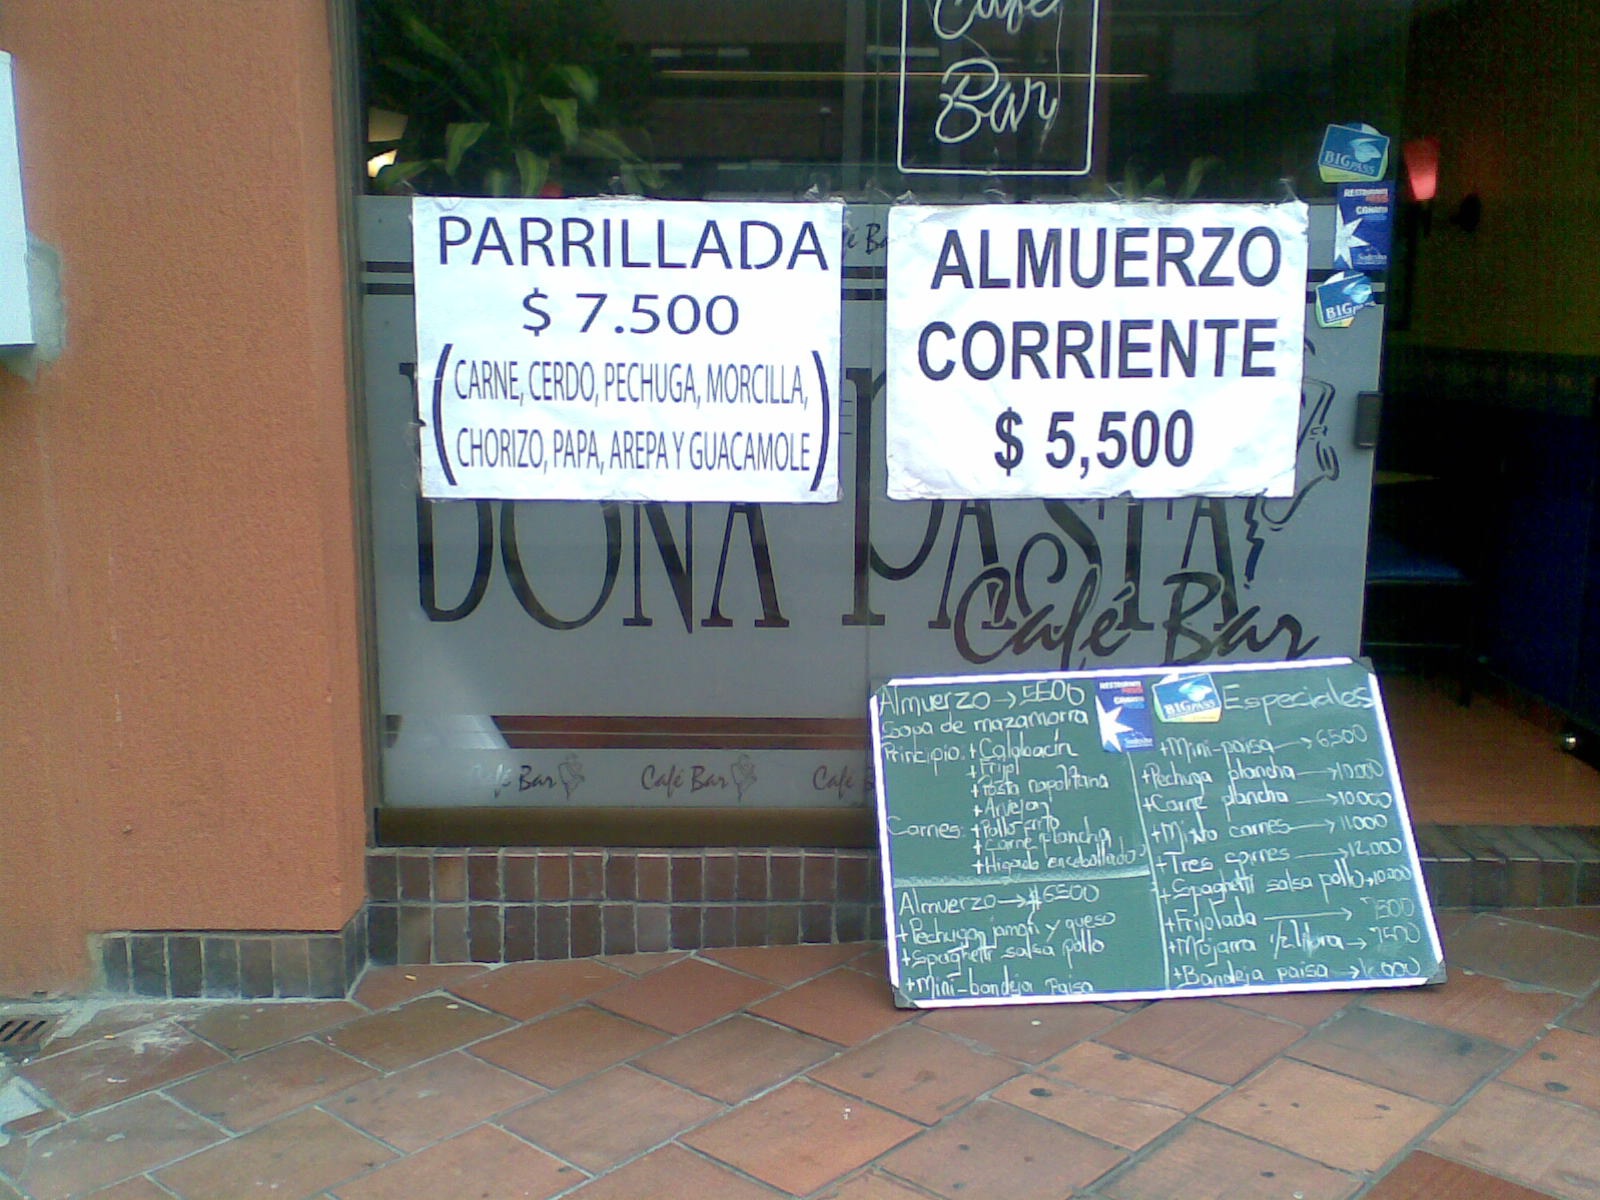 Café
Bar
PARRILLADA
$ 7.500
(CARNE, CERDO, PECHUGA, MORCILLA,
CHORIZO, PAPA, AREPA Y GUACAMOLE)
ALMUERZO
CORRIENTE
$ 5,500
BIGPASS
RESTAURANTE
PASS
CANASTA
PASS
Sodexho
BIGPASS
DOÑA PASTA
Café Bar
Café Bar
Café Bar
Café
Almuerzo → 5500
Sopa de mazamorra
Principio: + Calabacín
+ Frijol
+ Pasta napolitana
+ Arvejan
Carnes: + Pollo frito
+ Carne plancha
+ Higado encebollado
Almuerzo → $6500
+ Pechuga, jamón y queso
+ Spaghetti salsa pollo
+ Mini-bandeja Paisa
RESTAURANTE
PASS
CANASTA
PASS
Sodexho
BIGPASS
Especiales
+ Mini-paisa → 6500
+ Pechuga plancha → 10.000
+ Carne plancha → 10.000
+ Mixto carnes → 11.000
+ Tres carnes → 12.000
+ Spaghetti salsa pollo → 10.000
+ Frijolada → 7500
+ Mojarra 1/2 libra → 7500
+ Bandeja paisa →